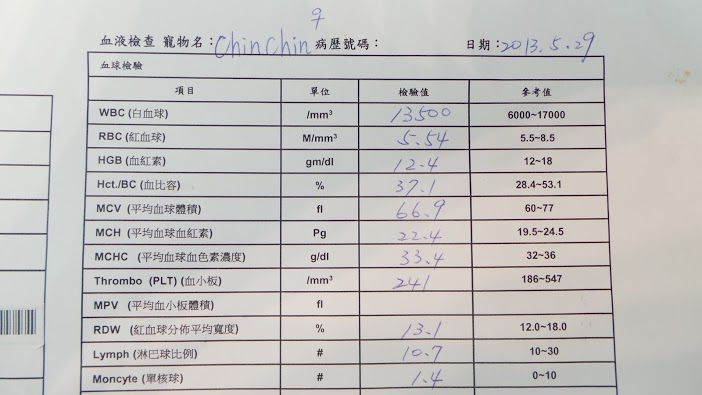 ♀
血液檢查 寵物名：Chin Chin 病歷號碼： 日期：2013.5.29
血球檢驗
項目 單位 檢驗值 參考值
WBC (白血球) /mm³ 13500 6000~17000
RBC (紅血球) M/mm³ 5.54 5.5~8.5
HGB (血紅素) gm/dl 12.4 12~18
Hct./BC (血比容) % 37.1 28.4~53.1
MCV (平均血球體積) fl 66.9 60~77
MCH (平均血球血紅素) Pg 22.4 19.5~24.5
MCHC (平均血球血色素濃度) g/dl 33.4 32~36
Thrombo (PLT) (血小板) /mm³ 241 186~547
MPV (平均血小板體積) fl
RDW (紅血球分佈平均寬度) % 13.1 12.0~18.0
Lymph (淋巴球比例) # 10.7 10~30
Moncyte (單核球) # 1.4 0~10